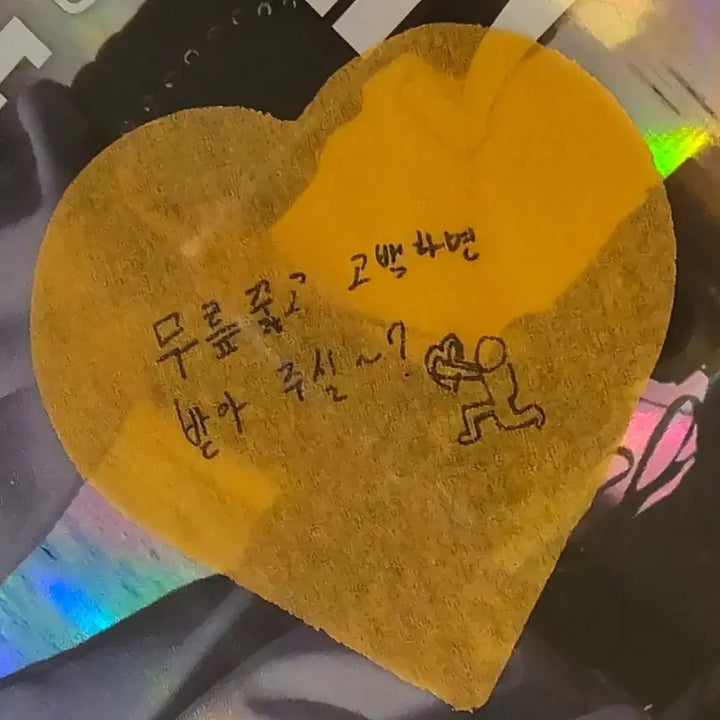 무릎 꿇고 고백하면
받아 주실~?